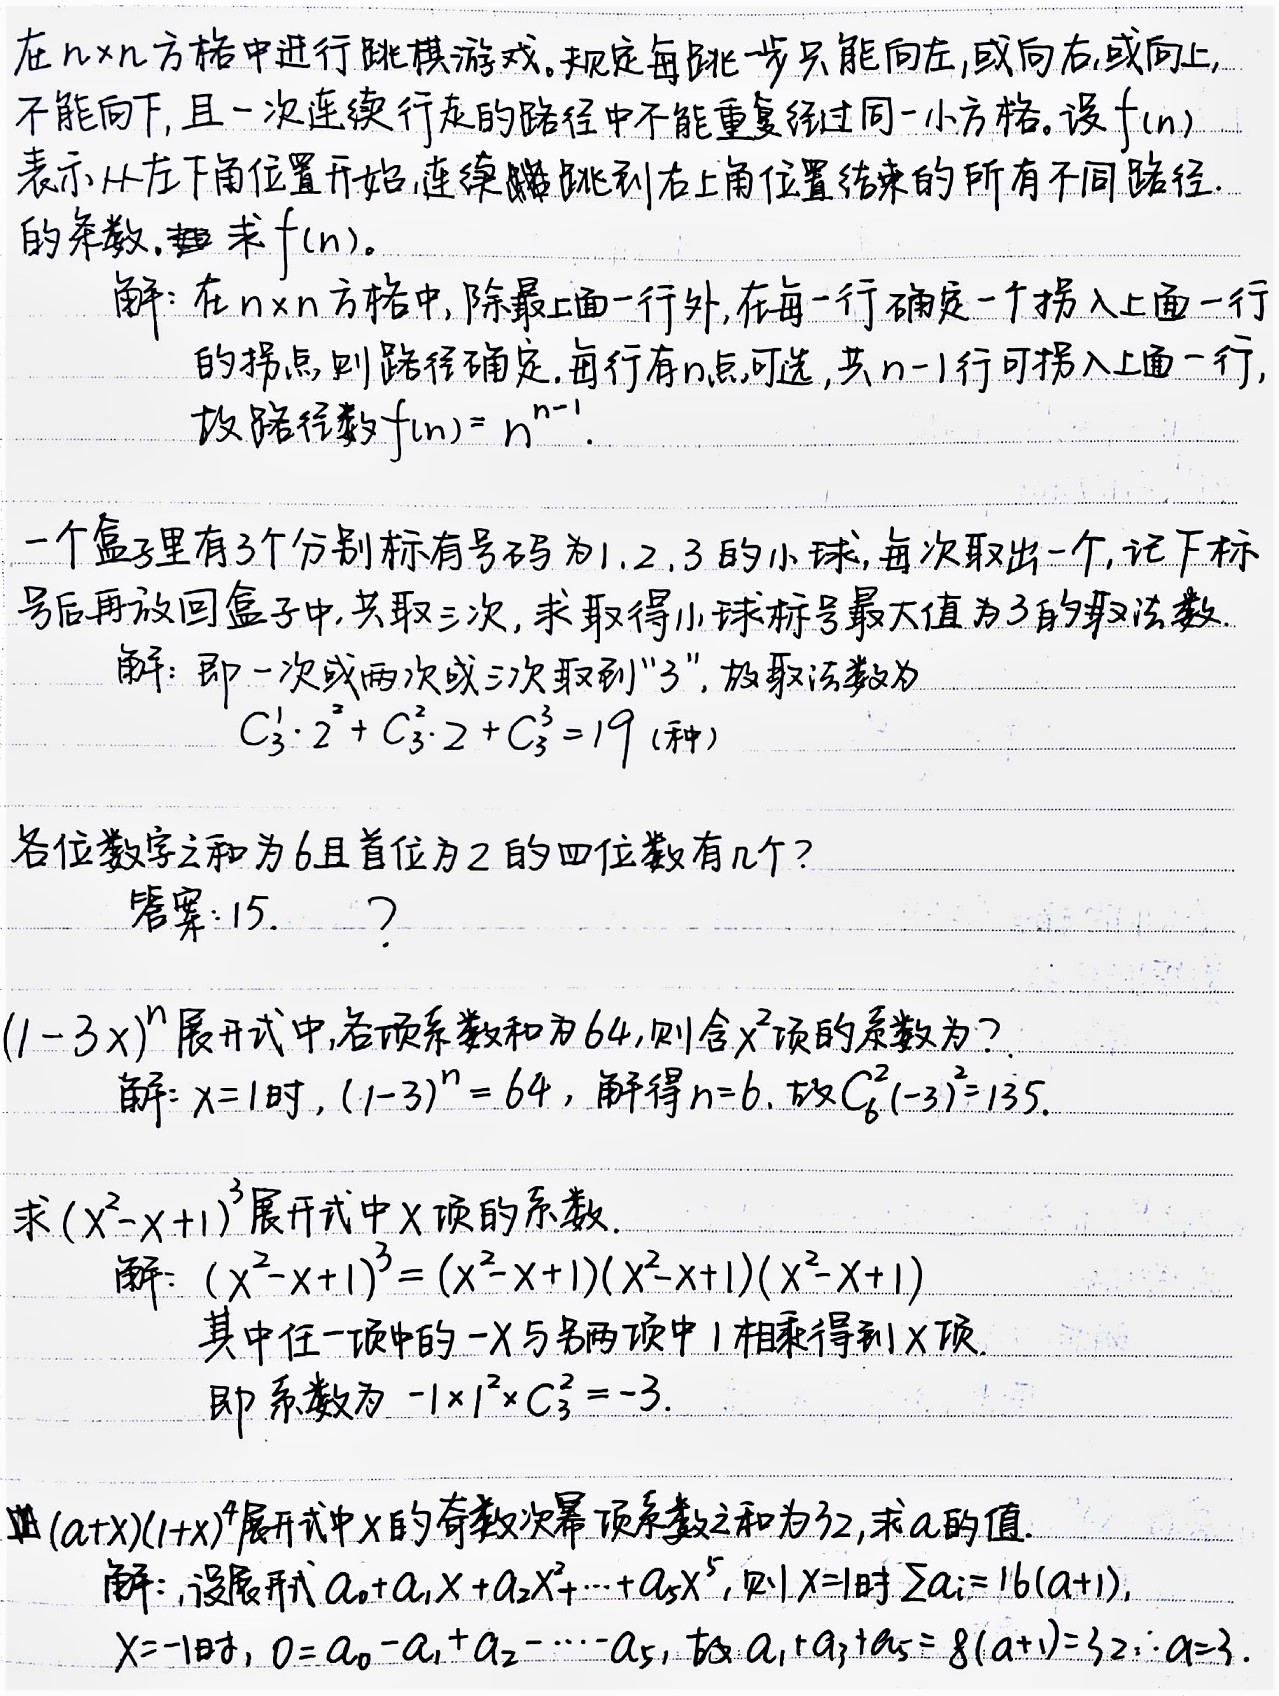 在n×n方格中进行跳棋游戏。规定每跳一步只能向左,或向右,或向上,
不能向下,且一次连续行走的路径中不能重复经过同一小方格。设f(n)
表示从左下角位置开始,连续跳到右上角位置结束的所有不同路径
的条数。求f(n)。
解:在n×n方格中,除最上面一行外,在每一行确定一个拐入上面一行
的拐点,则路径确定.每行有n点可选,共n-1行可拐入上面一行,
故路径数f(n)=n^{n-1}.
一个盒子里有3个分别标有号码为1.2.3的小球,每次取出一个,记下标
号后再放回盒子中,共取三次,求取得小球标号最大值为3的取法数.
解:即一次或两次或三次取到"3",故取法数为
C₃¹·2²+C₃²·2+C₃³=19(种)
各位数字之和为6且首位为2的四位数有几个?
答案:15. ?
(1-3x)ⁿ展开式中,各项系数和为64,则含x²项的系数为?
解:x=1时,(1-3)ⁿ=64,解得n=6.故C₆²(-3)²=135.
求(x²-x+1)³展开式中x项的系数.
解:(x²-x+1)³=(x²-x+1)(x²-x+1)(x²-x+1)
其中任一项中的-x与另两项中1相乘得到x项.
即系数为-1×1²×C₃²=-3.
(a+x)(1+x)⁴展开式中x的奇数次幂项系数之和为32,求a的值.
解:设展开式a₀+a₁x+a₂x²+…+a₅x⁵,则x=1时Σaᵢ=16(a+1),
x=-1时,0=a₀-a₁+a₂-…-a₅,故a₁+a₃+a₅=8(a+1)=32∴a=3.